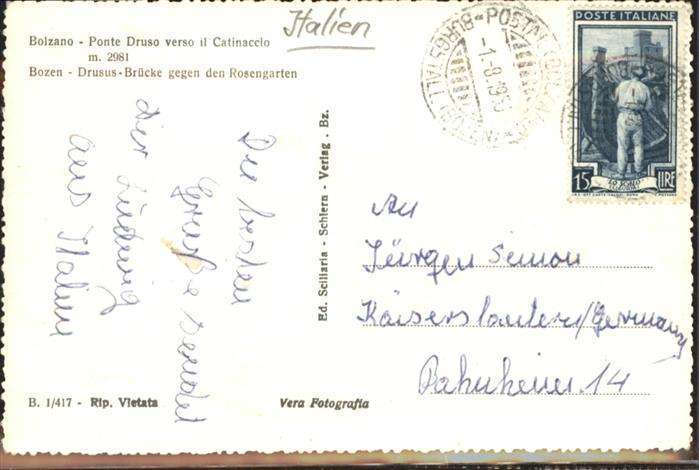 Bolzano - Ponte Druso verso il Catinaccio
m. 2981
Bozen - Drusus-Brücke gegen den Rosengarten
Italien
POSTE ITALIANE
15 LIRE
Die besten
Grüße sendet
dir Ludwig
aus Italien
Ed. Sciliaria - Schlern - Verlag . Bz.
An
Jürgen Simon
Kaiserslautern/Germany
14
B. 1/417 - Rip. Vietata
Vera Fotografia